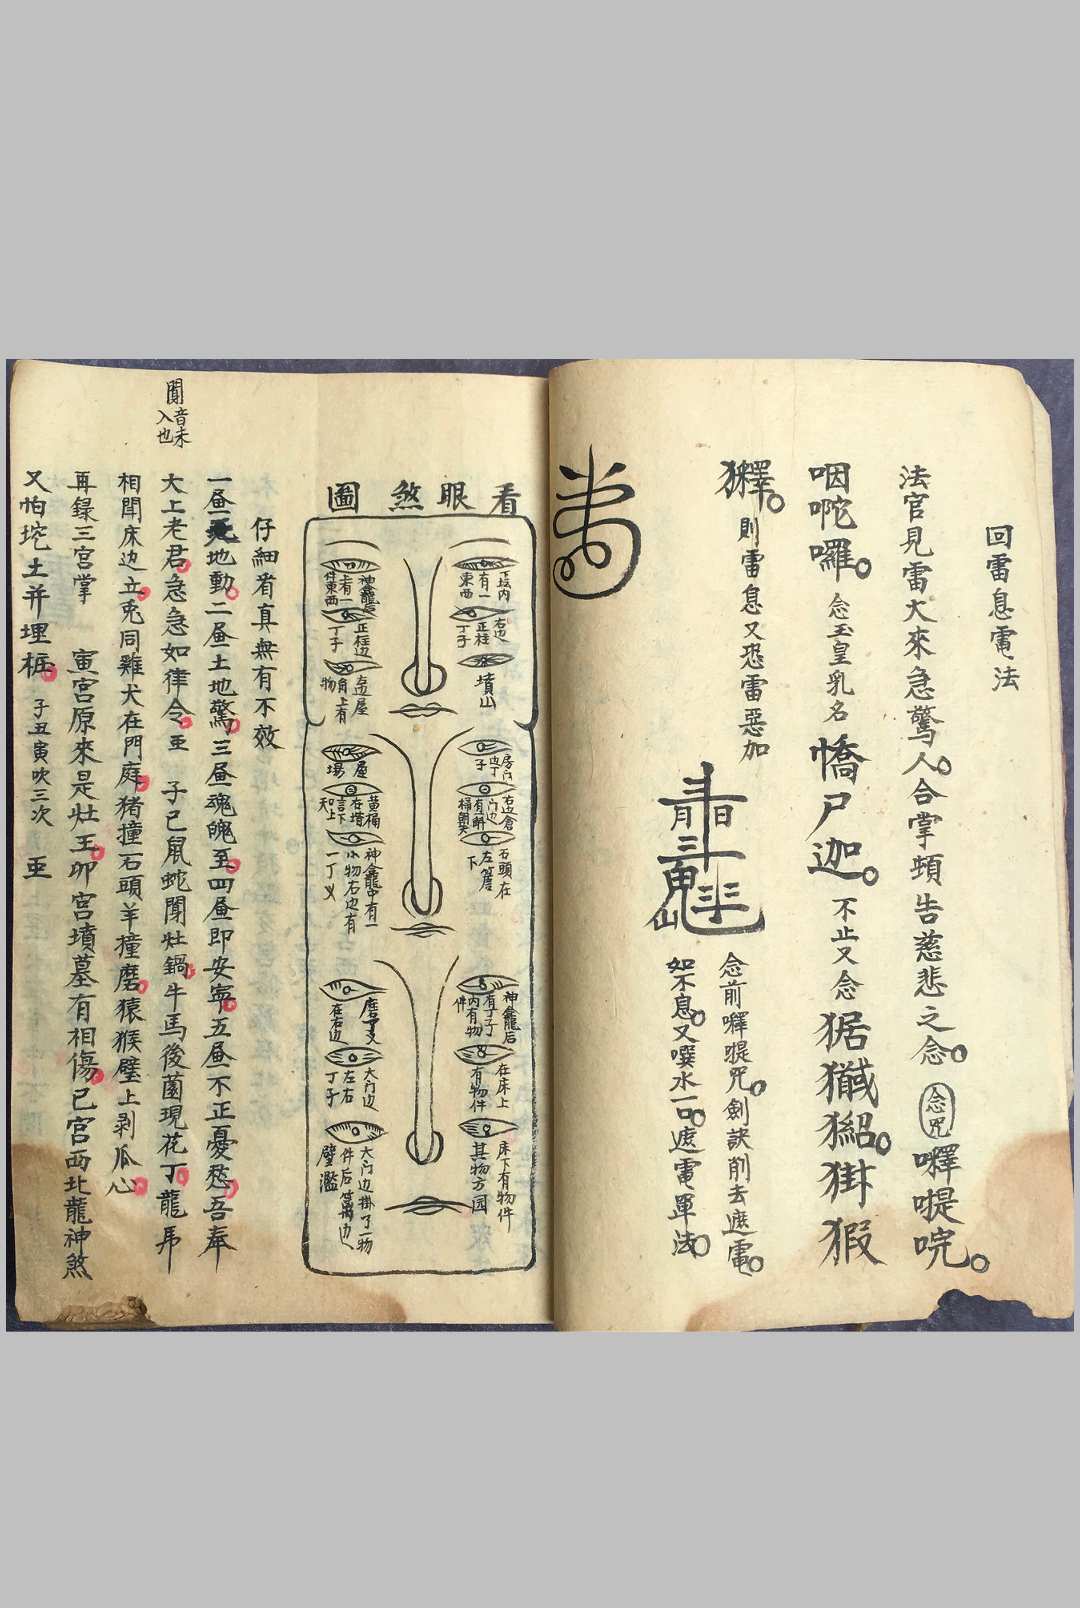 回雷息電法
法官見雷大來急驚人合掌頓告慈悲之念 念咒 㘁㖷唍
咽㖿囉 念玉皇乳名 憍尸迦 不止又念 猑
則雷息又恐雷惡加
念前㘁㖷咒劍訣削去遮電
如不息又噀水一口遮電軍法
看眼煞圖
坛内有一東西
右边正柱丁子
墳山
神龕后上有一件東西
正柱边丁子
左边屋角上有物
房门边丁子
右边倉门边有斛桶
石頭在左簷下
屋場
黄桶在堦言下
神龕中有一小物右边有一丁义
神龕后有丁子内有物件
在床上有物件
床下有物件其物方园
磨丁义在右边
大门边左右丁子
大门边掛了一物件后篱边壁濫
仔細看真無有不效
一昼天地動二昼土地驚三昼魂魄至四昼即安寧五昼不正憂愁吾奉
大上老君急急如律令 子巳鼠蛇聞灶鍋牛馬後薗現花丁龍
相聞床边立兎同雞犬在門庭猪撞石頭羊撞磨猿猴壁上剥瓜心
再録三宮掌 寅宮原來是灶王卯宮墳墓有相傷巳宮西北龍神煞
又怕挖土并埋桩 子丑寅吹三次
音未入也